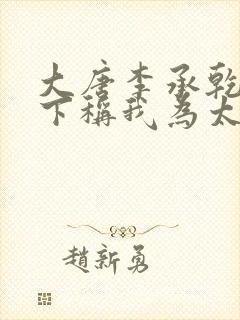 大唐李承乾
下稱我為太
趙新勇